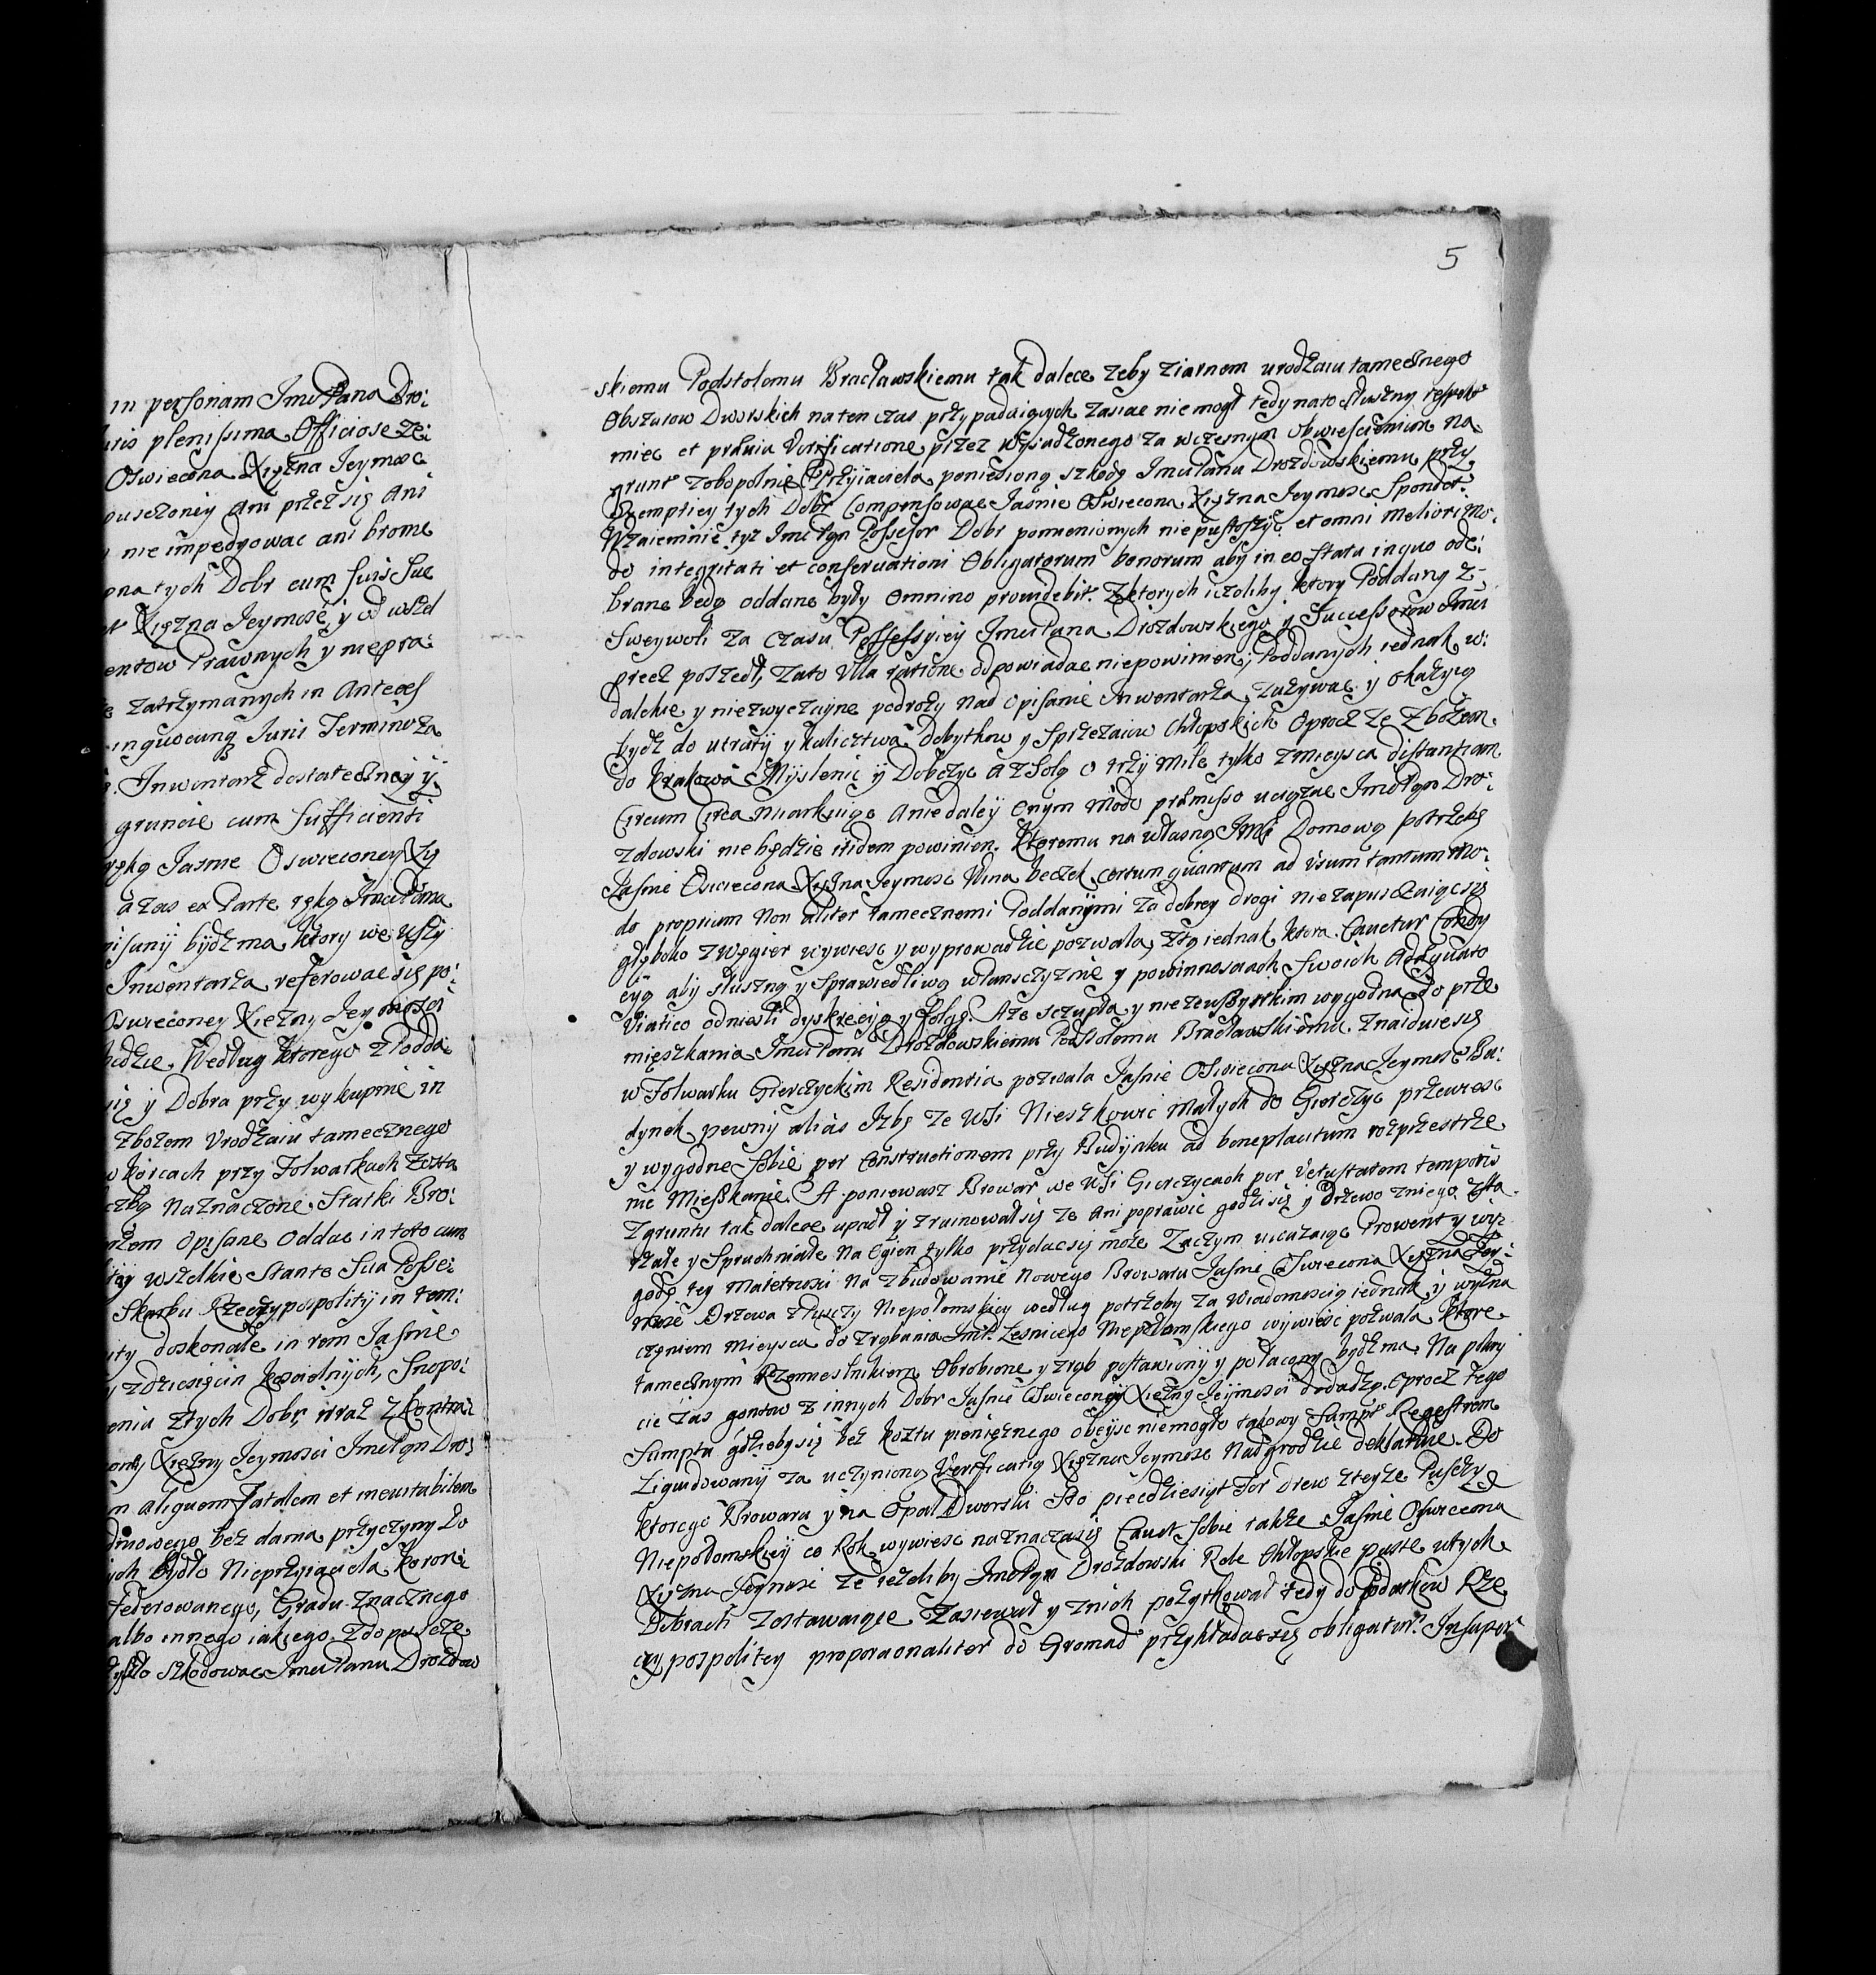 in personam Jmci Pana Dro:
Juris plenissima Officiose ze:
Oswiecona Xiężna Jeymosc
puszczoney ani przez się ani
nie impedyowac ani bronic
ona tych Dobr cum suis Suc
Xiężna Jeymość, y od wszel
entow Prawnych y niepra:
zatrzymanych in Anteces
inquocunq Juris Termino za
Jnwentarz dostateczney y
gruncie cum sufficienti
ręką Jasnie Oswieconey Xię
a zas ex Parte ręką Jmci Pana
pisany bydz ma, ktory we wszy
Jnwentarza, referowac się po:
Oswieconey Xiężny Jeymosci
będzie. Według ktorego z Podda
się y Dobra przy wykupnie in
zbozem Vrodzaiu tamecznego
korcach przy Folwarkach zosta
czbą naznaczone, Statki Bro:
opisane oddac in toto cum
wszelkie Stante Sua Posse:
Skarbu Rzeczypospolity in tem:
doskonałe in rem Jasnie
zdziesięcin koscielnych, Snopo:
enia ztych Dobr, wraz z kontra
Xiężny Jeymosci Jmc Pan Dro:
aliquem Fatalem et ineuitabilem
bez dania przyczyny do
ych bydło Nieprzyiaciela koron:
federowanego, Gradu znacznego
albo innego iakiego zdopuszcze
szkodowac Jmci Panu Drozdow
5
skiemu Podstolemu Bracławskiemu tak dalece zeby ziarnem urodzaiu tamecznego
Obszarow Dworskich na ten czas przypadaiących zasiac nie mogł tedy na to słuszny respekt
miec et præuia Verificatione przez wysadzonego za wczesnym obwieszczeniem na
grunt zobopolnie Przyiaciela poniesioną szkodę Jmci Panu Drozdowskiemu przy
Exemptiey tych Dobr Compensowac Jasnie Oswiecona Xiężna Jeymosc Spondet.
Wzaiemnie tyz Jmc Pan Possesor Dobr pomienionych nie pustoszyć et omni Meliori Mo:
do integritati et conseruationi Obligatorum bonorum aby in eo statu in quo ode:
brane będą oddane były omnino prouidebit. Z ktorych iezeliby ktory Poddany z
Sweywoli za czasu Possessyiey Jmci Pana Drozdowskiego y Successorow Jmci
precz poszedł, za to Vlla ratione odpowiadac niepowinien; Poddanych iednak w:
dalekie y niezwyczayne podrozy nad opisanie Jnwentarza zazywac y okazyą
bydz do utraty y kalictwa dobytkow y Sprzezaiow Chłopskich oprocz ze zbozem
do Krakowa Myslenic y Dobczyc a z Solą o trzy Mile tylko z mieysca distantiam
circum Circa miarkuiąc a nie daley onym modo præmisso uciązac Jmc Pan Dro:
zdowski nie będzie itidem powinien. Ktoremu na własną Jmci Domową potrzebę
Jasnie Oswiecona Xiężna Jeymosc Wina beczek certum quantum ad usum tantum mo:
do proprium non aliter tamecznemi Poddanymi za dobrey drogi niezapuszczaiąc się
głęboko z Węgier wywiesc y wyprowadzic pozwala, z tą iednak, ktora Cauetur Condy
cyą aby słuszną y Sprawiedliwą w Pansczyznie y powinnosciach swoich Adæquato
Viatico odniesli dyskrecyą y folgę. A ze szczupła y nie ze wszystkim wygodna do prze
mięszkania Jmci Panu Drozdowskiemu Podstolemu Bracławskiemu znaiduie się
w Folwarku Gierczyckim Residentia pozwala Jasnie Oswiecona Xiężna Jeymosc Bu:
dynek pewny alias Jzbę ze Wsi Nieszkowic Małych do Gierczyc przewiesc
y wygodne sobie per constructionem przy Budynku ad beneplacitum rozprzestrze
nic Mieszkanie. A poniewasz Browar we Wsi Gierczycach per Vetustatem temporis
z gruntu tak dalece upadł y zruinował się ze ani poprawic godzi się y Drzewo z niego zsta
rzałe y spruchniałe na ogien tylko przydac się moze Zaczym uwazaiąc Prowent y wy:
godę tey Maietnosci na zbudowanie Nowego Browaru Jasnie Oswiecona Xiężna Jey:
mosc Drzewa z Puszczy Niepołomskiey według potrzeby za wiadomoscią iednak y wyzna
czeniem mieysca do zrąbania Jmci Lesnicego Niepołomskiego wywiesc pozwala ktore
tamecznym Rzemieslnikiem obrobione y zrąb postawiony y połacony bydz ma. Na pokry
cie zas gontow z innych Dobr Jasnie Oswieconey Xiężny Jeymosci dodadzą. Oprocz tego
sumptu gdzieby się bez kosztu pienięznego obeysc niemogło takowy Sumpt Regestrem
Liquidowany za uczynioną Verificatią Xiężna Jeymosc nadgrodzic deklaruie. Do
ktorego Browaru y na Opał Dworski Sto pięcdziesiąt For drew z teyze Puszczy
Niepołomskiey co Rok wywiesc naznacza się Cauet sobie takze Jasnie Oswiecona
Xiężna Jeymosc ze iezeliby Jmc Pan Drozdowski Role Chłopskie puste w tych
Dobrach zostawaiące Zasiewał y z nich pozytkował tedy do Podatkow Rze
czypospolitey proporcionaliter do Gromad przykładac się obligatur. Insuper